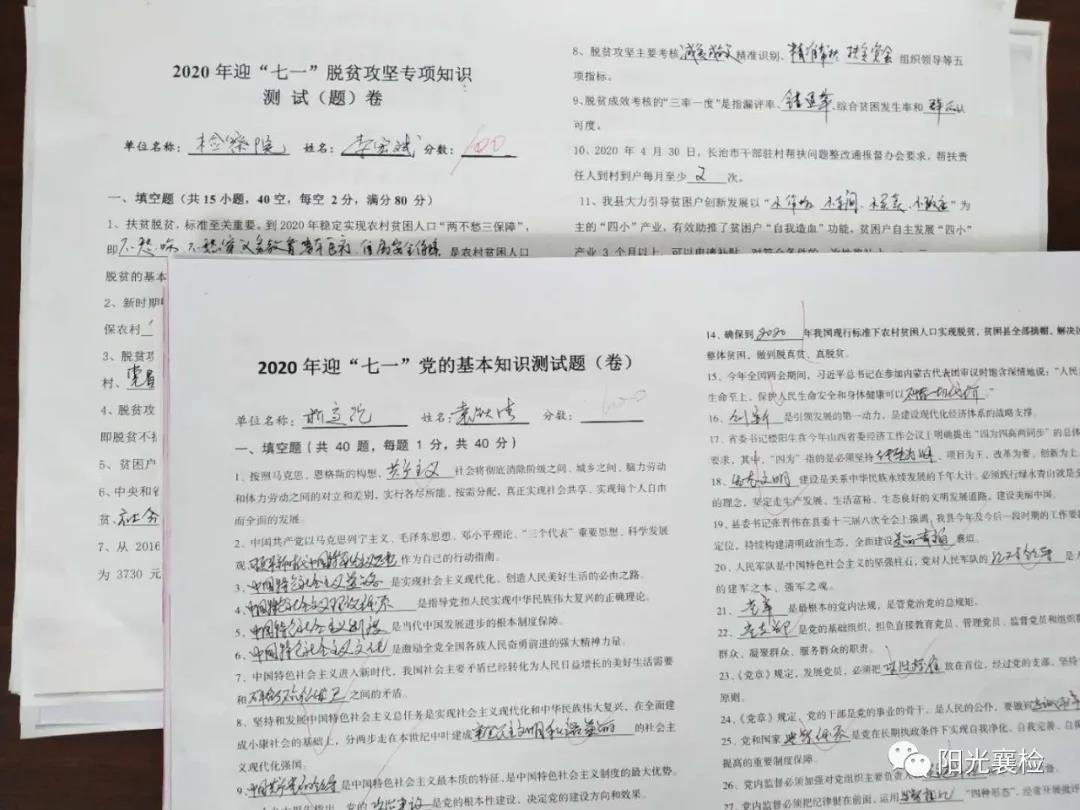 2020年迎“七一”脱贫攻坚专项知识
测 试（题）卷
单位名称： 检察院 姓名： 李宏斌 分数： 100
一、填空题（共15小题，40空，每空 2 分，满分 80 分）
1、扶贫脱贫，标准至关重要。到2020年稳定实现农村贫困人口“两不愁三保障”，
即不愁吃、不愁穿、义务教育、基本医疗、住房安全保障，是农村贫困人口
脱贫的基本
2、新时期
保农村
3、脱贫攻
村、党员
4、脱贫攻
即脱贫不
5、贫困户
6、中央和省
贫、社会
7、从 2016
为 3730 元
8、脱贫攻坚主要考核减贫成效、精准识别、精准帮扶、扶贫资金 组织领导等五
项指标。
9、脱贫成效考核的“三率一度”是指漏评率、错退率、综合贫困发生率和 群众认
可度。
10、2020 年 4 月 30 日，长治市干部驻村帮扶问题整改通报督办会要求，帮扶责
任人到村到户每月至少 2 次。
11、我县大力引导贫困户创新发展以“小作坊、小车间、小买卖、小 ”为
主的“四小”产业，有效助推了贫困户“自我造血”功能。贫困户自主发展“四小”
产业 3 个月以上，可以申请补贴，对符合条件的，一次性奖补
2020年迎“七一”党的基本知识测试题（卷）
单位名称： 姓名： 分数： 100
一、填空题（共 40 题，每题 1 分，共 40 分）
1、按照马克思、恩格斯的构想，共产主义 社会将彻底消除阶级之间、城乡之间、脑力劳动
和体力劳动之间的对立和差别，实行各尽所能、按需分配，真正实现社会共享、实现每个人自由
而全面的发展。
2、中国共产党以马克思列宁主义、毛泽东思想、邓小平理论、“三个代表”重要思想、科学发展
观、习近平新时代中国特色社会主义思想 作为自己的行动指南。
3、中国特色社会主义道路 是实现社会主义现代化、创造人民美好生活的必由之路。
4、中国特色社会主义理论体系 是指导党和人民实现中华民族伟大复兴的正确理论。
5、中国特色社会主义制度 是当代中国发展进步的根本制度保障。
6、中国特色社会主义文化 是激励全党全国各族人民奋勇前进的强大精神力量。
7、中国特色社会主义进入新时代，我国社会主要矛盾已经转化为人民日益增长的美好生活需要
和不平衡不充分的发展 之间的矛盾。
8、坚持和发展中国特色社会主义总任务是实现社会主义现代化和中华民族伟大复兴，在全面建
成小康社会的基础上，分两步走在本世纪中叶建成富强民主文明和谐美丽 的社会主
义现代化强国。
9、中国共产党的领导 是中国特色社会主义最本质的特征，是中国特色社会主义制度的最大优势。
党的政治建设 是党的根本性建设，决定党的建设方向和效果。
14、确保到 2020 年我国现行标准下农村贫困人口实现脱贫，贫困县全部摘帽，解决区
整体贫困，做到脱真贫、真脱贫。
15、今年全国两会期间，习近平总书记在参加内蒙古代表团审议时饱含深情地说：“人民
生命至上，保护人民生命安全和身体健康可以 不惜一切代价。”
16、创新 是引领发展的第一动力，是建设现代化经济体系的战略支撑。
17、省委书记楼阳生在今年山西省委经济工作会议上明确提出“四为四高两同步”的总体
要求，其中，“四为”指的是必须坚持 转型为纲、项目为王、改革为要、创新为上
18、生态文明 建设是关系中华民族永续发展的千年大计。必须践行绿水青山就是金
的理念，坚定走生产发展、生活富裕、生态良好的文明发展道路，建设美丽中国。
19、县委书记张晋伟在县委十三届八次全会上强调，我县今年及今后一段时期的工作要
定位，持续构建清明政治生态，全面建设 襄垣。
20、人民军队是中国特色社会主义的坚强柱石，党对人民军队的 绝对领导 是人
的建军之本、强军之魂。
21、党章 是最根本的党内法规，是管党治党的总规矩。
22、党支部 是党的基础组织，担负直接教育党员、管理党员、监督党员和组织群
群众、凝聚群众、服务群众的职责。
23、《党章》规定，发展党员，必须把 政治标准 放在首位，经过党的支部，坚持
原则。
24、《党章》规定，党的干部是党的事业的骨干，是人民的公仆，要做到忠诚干净
25、党和国家 监督体系 是党在长期执政条件下实现自我净化、自我完善、自我
提高的重要制度保障。
26、党内监督必须加强对党组织主要负责人
27、党内监督必须把纪律挺在前面，运用监督执纪“四种形态”，经常开展批评
阳光襄检